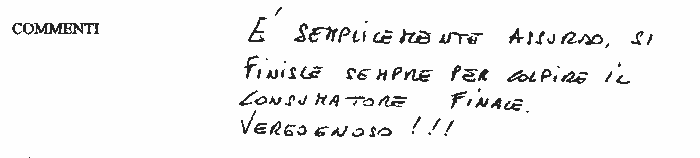 COMMENTI
E' SEMPLICEMENTE ASSURDO, SI
FINISCE SEMPRE PER COLPIRE IL
CONSUMATORE FINALE.
VERGOGNOSO !!!